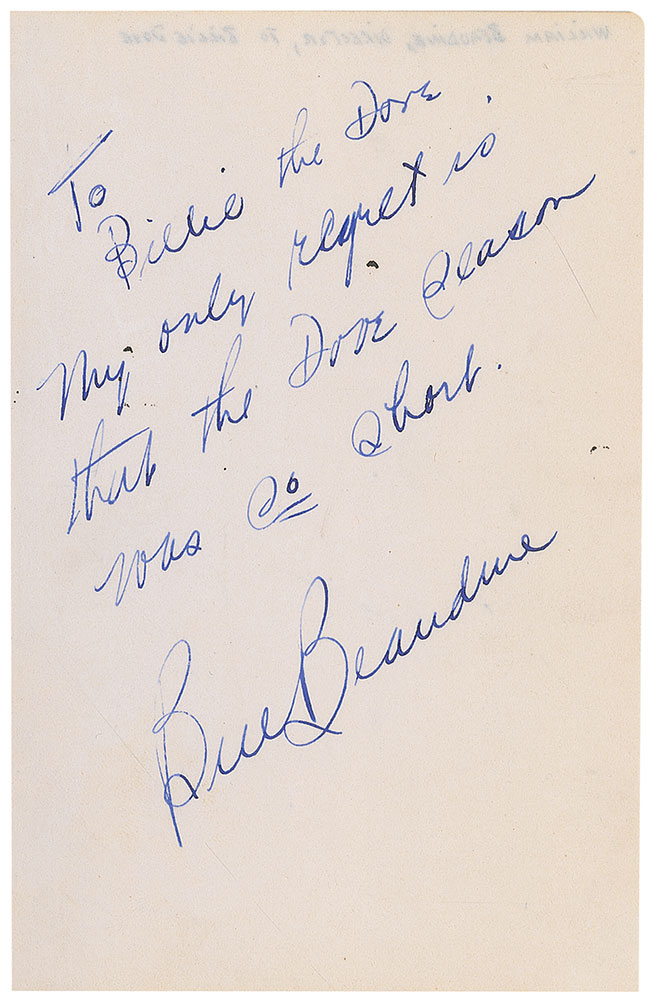 WILLIAM BEAUDINE, DIRECTOR, TO BILLIE DOVE
To
Billie the Dove
My only regret is
that the Dove season
was so short.
Bill Beaudine